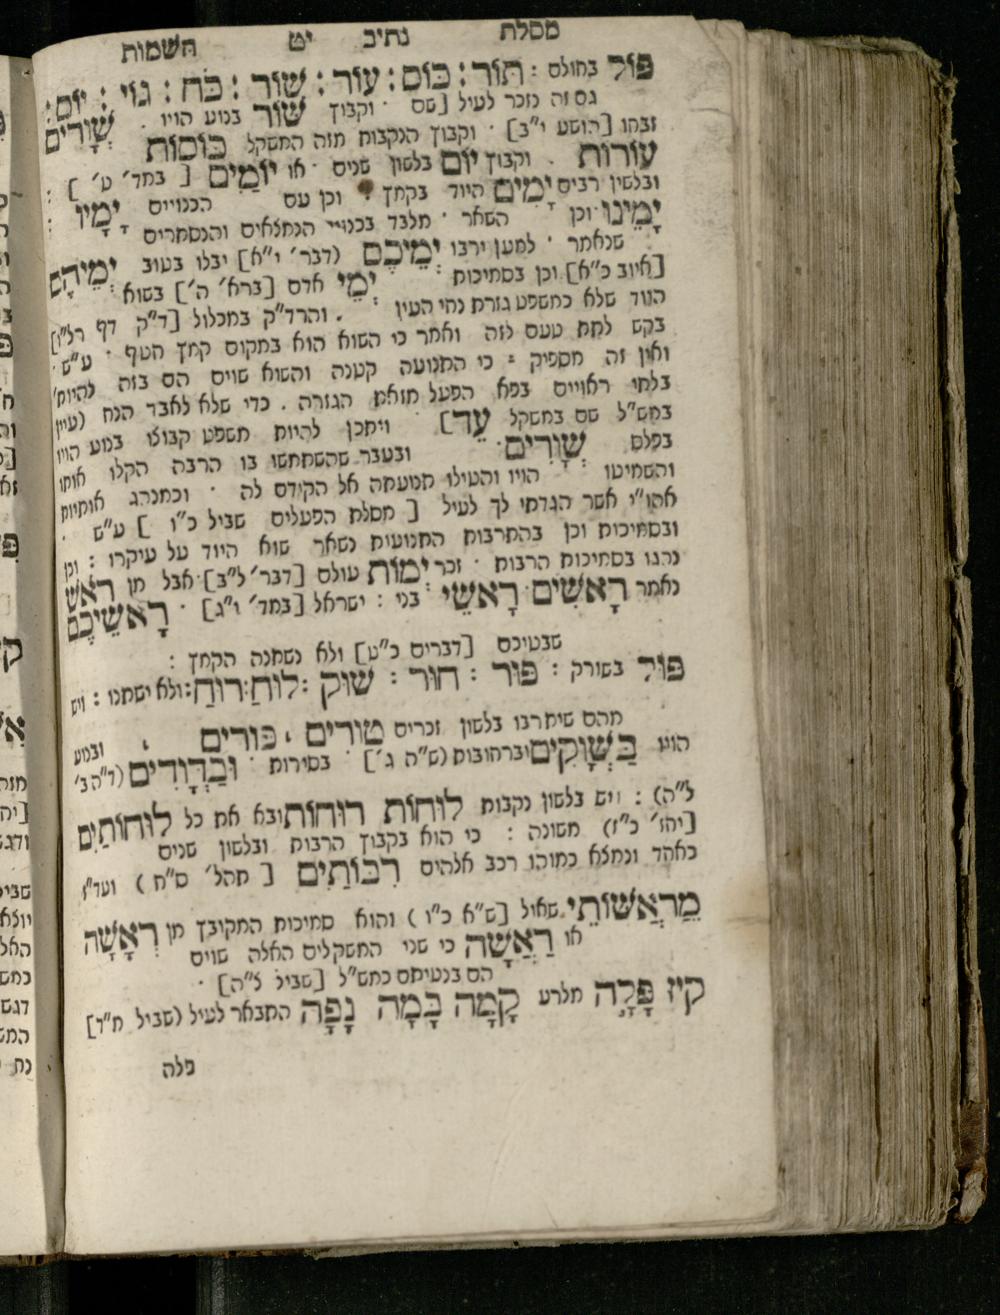 מסלת נתיב יט השמות
פול בחולם : תור : כוס : עור : שור : כח : גוי : יום :
גם זה נזכר לעיל [שם וקבוץ שור בנוע הויו . שְׁוָרִים
זבחו [הושע י"ב] · וקבוץ הנקבות מזה המשקל כּוֹסוֹת
עוֹרוֹת . וקבוץ יוֹם בלשון שנים · או יוֹמַיִם [ במד' ט' ] :
ובלשון רבים יָמִים היוד בקמץ וכן עם הכנויים יָמָיו :
יָמֵינוּ וכן השאר · מלבד בכנויי הנמצאים והנסתרים
שנאמר · למען ירבו יְמֵיכֶם (דבר' י"א] יבלו בטוב יְמֵיהֶם
[איוב כ"א] וכן בסמיכות יְמֵי אדם [ברא' ה'] בשוא
הנוד שלא כמשפט גזרת נחי העין . והרד"ק במכלול [ד"ק דף רל"ו]
בקש לתת טעם לזה ואמר כי השוא הוא במקום קמץ חטף · ע"ש ·
ואין זה מספיק : כי התנועה קטנה והשוא שוים הם בזה להיות
בלתי ראויים בפא הפעל מזאת הגזרה . כדי שלא לאבד הנח (עיין
במש"ל שם במשקל עֵד] ויתכן להיות משפט קבוצו בנוע הויו
בפלם שְׁוָרִים · ובעבר שהשתמשו בו הרבה הקלו אותו
והשמיטו הויו והטילו תנועתה אל הקודם לה · וכמנהג אותיות
אהו"י אשר הגדתי לך לעיל [ מסלת הפעלים שביל כ"ו ] ע"ש .
ובסמיכות וכן בהתרבות התנועות נשאר שוא היוד על עיקרו : וכן
נהגו בסמיכות הרבות · זכר יְמוֹת עולם [דבר' ל"ב] · אבל מן ראש
נאמר רָאשִׁים רָאשֵׁי בני : ישראל [במד' י"ג] · רָאשֵׁיכֶם
שבטיכם [דברים כ"ט] ולא נשתנה הקמץ :
פול בשורק : פּוּר : חוּר : שׁוּק : לוּחַ : רוּחַ : ולא ישתנו : ויש
מהם שיתרבו בלשון זכרים טוּרִים , כּוּרִים , ובנוע
הויו בַּשְּׁוָקִים וברחובות (ש"ה ג'] בסירות · וּבַדְּוָדִים (ד"ה ב'
ל"ה) : ויש בלשון נקבות לוּחוֹת רוּחוֹת ובא את כל לוּחוֹתַיִם
[יחז' כ"ז) משונה : כי הוא בקבוץ הרבות ובלשון שנים
כאחד ונמצא כמוהו רכב אלהים רִבּוֹתַיִם [ תהל' ס"ח ) ועד"ז
מֵרַאֲשׁוֹתֵי שאול [ש"א כ"ו ) והוא סמיכות המקובץ מן רִאָשָׁה
או רַאֲשָׁה כי שני המשקלים האלה שוים
הם בנטיתם כמש"ל [שביל ל"ה] .
קיז פָּלָה מלרע קָמָה בָּמָה נָפָה התבאר לעיל (שביל מ"ד]
פלה